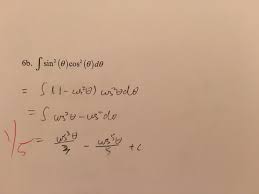 6b. ∫ sin²(θ)cos²(θ)dθ
= ∫ (1-cos²θ) cos²θdθ
= ∫ cos²θ - cos⁴dθ
1/5 = cos³θ/3 - cos⁵θ/5 + c